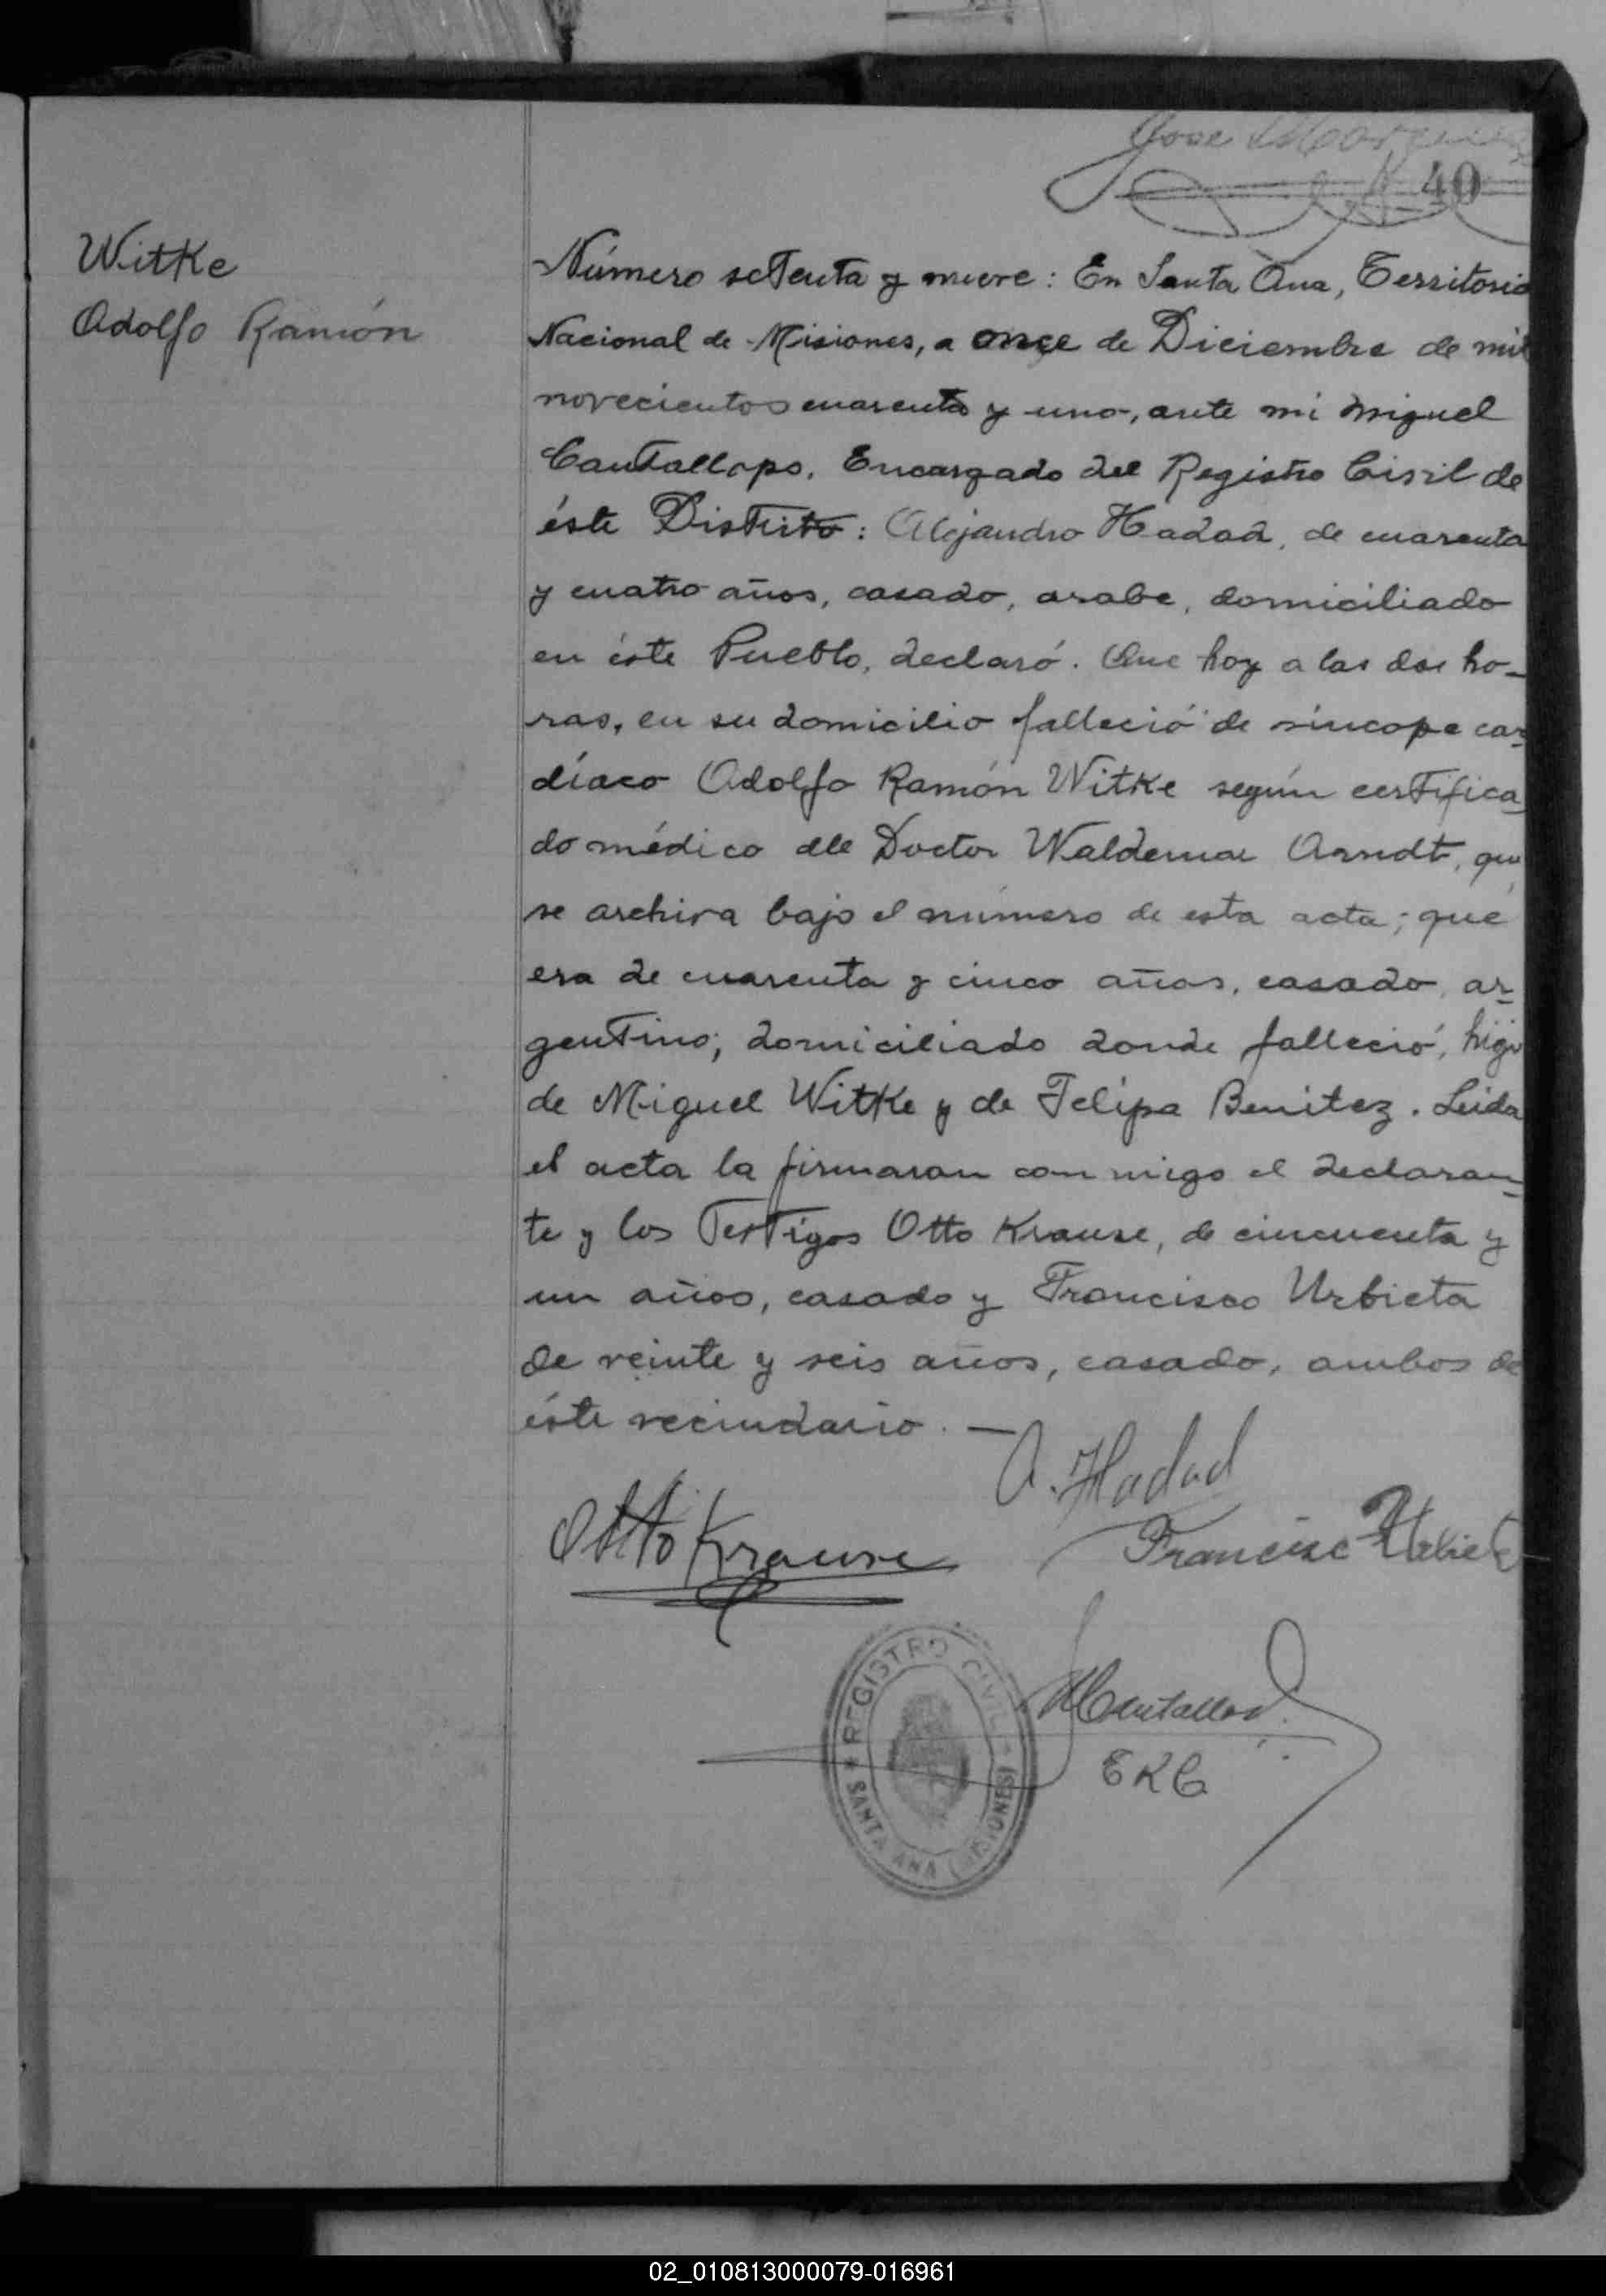 Jose
40
Witke
Adolfo Ramón
Número setenta y nueve: En Santa Ana, Territorio
Nacional de Misiones, a once de Diciembre de mil
novecientos cuarenta y uno, ante mi Miguel
Cantallops, Encargado del Registro Civil de
éste Distrito: Alejandro Hadad, de cuarenta
y cuatro años, casado, arabe, domiciliado
en éste Pueblo, declaró. Que hoy a las dos ho-
ras, en su domicilio falleció de síncope car-
díaco Adolfo Ramón Witke según certifica
do médico del Doctor Waldemar Arndt, que
se archiva bajo el número de esta acta; que
era de cuarenta y cinco años, casado, ar-
gentino, domiciliado donde falleció, hijo
de Miguel Witke y de Felipa Benitez. Leida
el acta la firmaran con migo el declaran-
te y los Testigos Otto Krause, de cincuenta y
un años, casado y Francisco Urbieta
de veinte y seis años, casado, ambos de
éste vecindario. —
A. Hadad
Otto Krause
Francisc Urbieta
REGISTRO CIVIL
SANTA ANA (MISIONES)
MCantallops
ERC
02_010813000079-016961